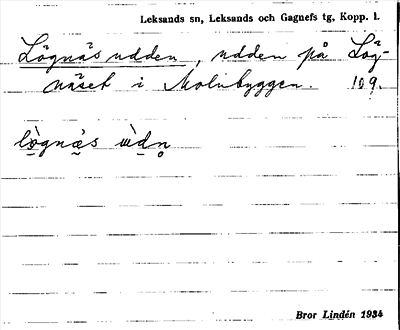 Leksands sn, Leksands och Gagnefs tg, Kopp. l.
Lögnäsudden, udden på Lög-
näset i Molnbyggen. 109.
Bror Lindén 1934